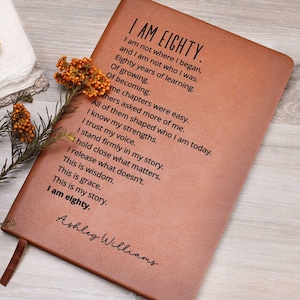 I AM EIGHTY.
I am not where I began,
and I am not who I was.
Eighty years of learning.
Of growing.
Of becoming.
me chapters were easy.
hers asked more of me.
All of them shaped who I am today.
I know my strengths.
I trust my voice.
I stand firmly in my story.
I hold close what matters.
I release what doesn't.
This is wisdom.
This is grace.
This is my story.
I am eighty.
Ashley Williams